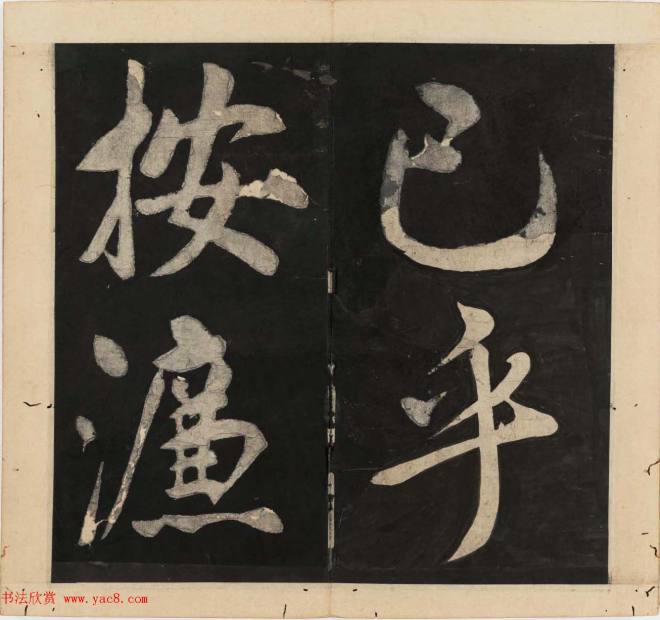 已乎
按濂
书法欣赏 www.yac8.com